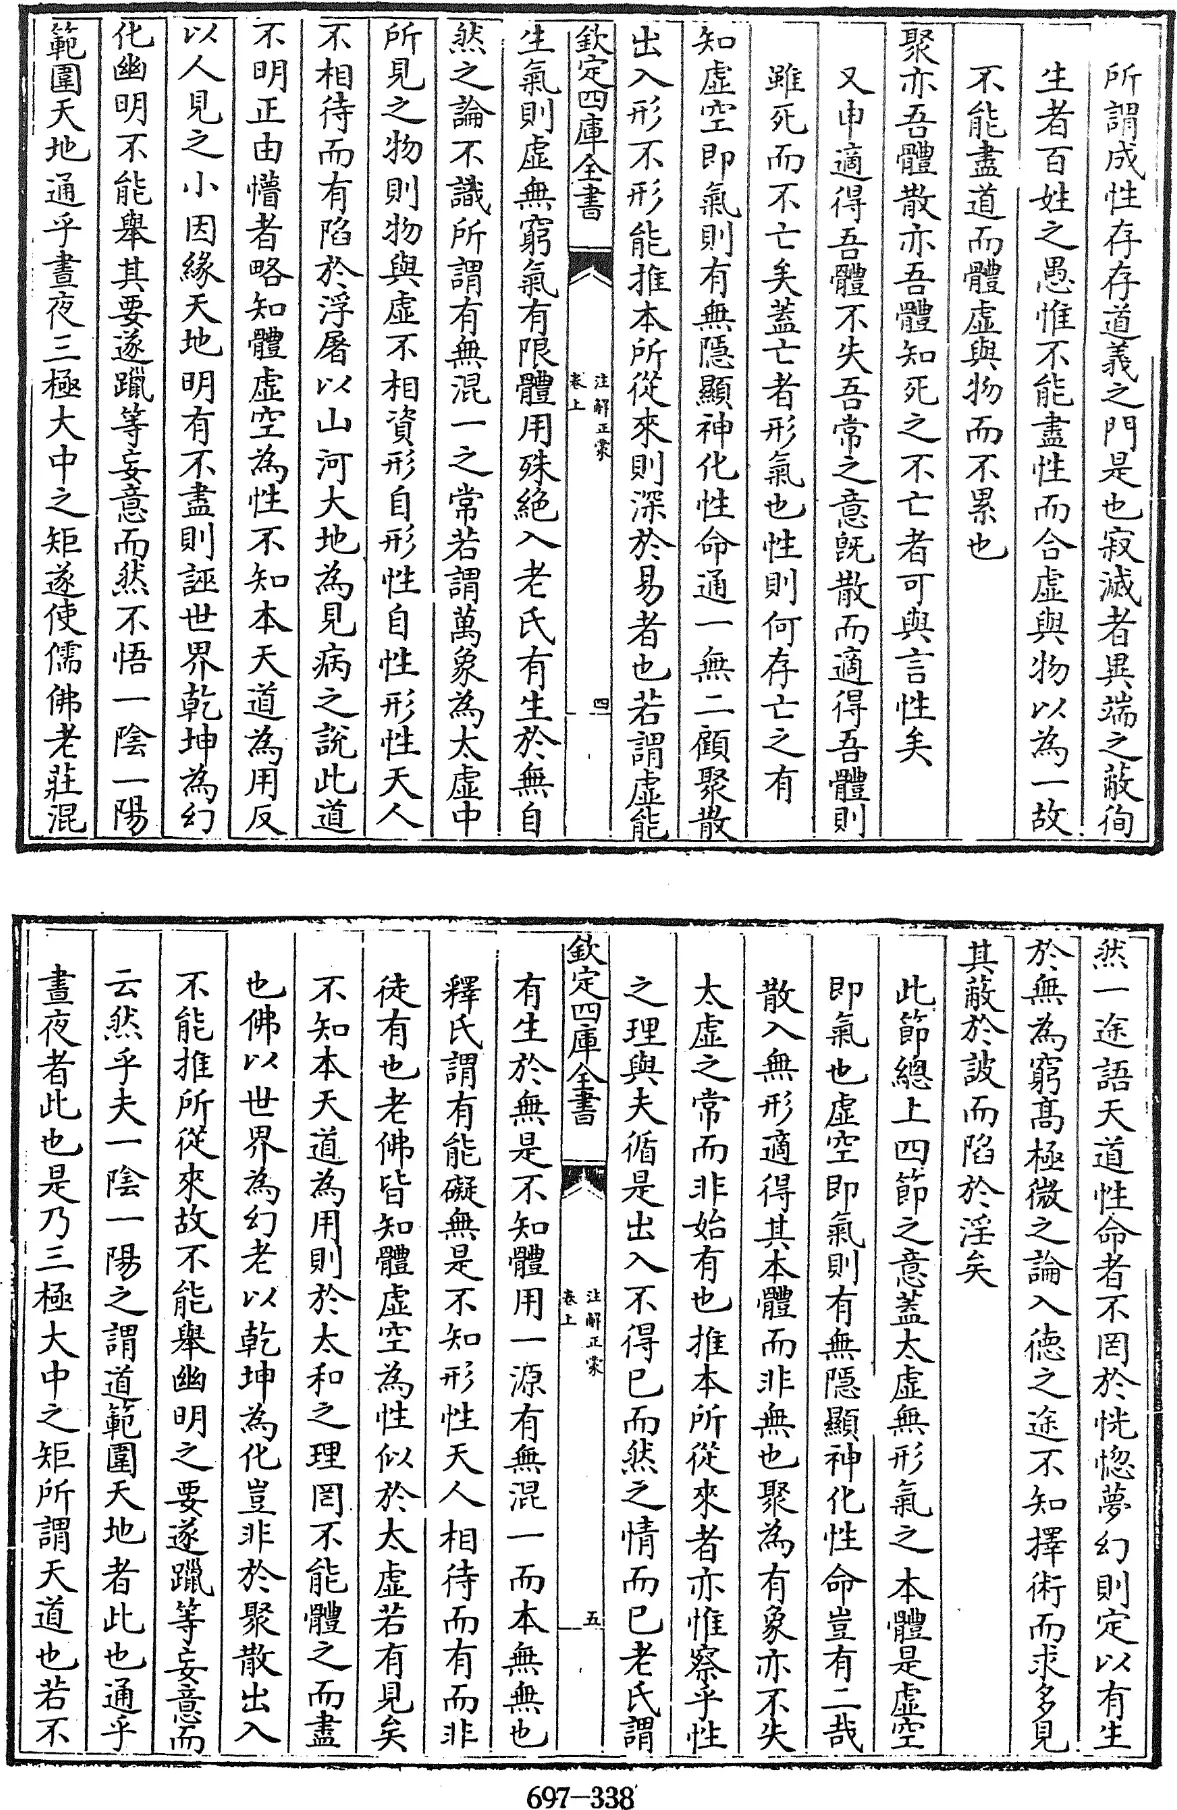 所謂成性存存道義之門是也寂滅者異端之蔽徇
生者百姓之愚惟不能盡性而合虛與物以為一故
不能盡道而體虛與物而不累也
聚亦吾體散亦吾體知死之不亡者可與言性矣
又申適得吾體不失吾常之意旣散而適得吾體則
雖死而不亡矣蓋亡者形氣也性則何存亡之有
知虛空即氣則有無隱顯神化性命通一無二顧聚散
出入形不形能推本所從來則深於易者也若謂虛能
欽定四庫全書
注解正蒙
卷上
四
生氣則虛無窮氣有限體用殊絶入老氏有生於無自
然之論不識所謂有無混一之常若謂萬象為太虛中
所見之物則物與虛不相資形自形性自性形性天人
不相待而有陷於浮屠以山河大地為見病之說此道
不明正由懵者略知體虛空為性不知本天道為用反
以人見之小因緣天地明有不盡則誣世界乾坤為幻
化幽明不能舉其要遂躐等妄意而然不悟一陰一陽
範圍天地通乎晝夜三極大中之矩遂使儒佛老莊混
然一途語天道性命者不罔於恍惚夢幻則定以有生
於無為窮髙極微之論入德之途不知擇術而求多見
其蔽於詖而陷於淫矣
此節總上四節之意蓋太虛無形氣之本體是虛空
即氣也虛空即氣則有無隱顯神化性命豈有二哉
散入無形適得其本體而非無也聚為有象亦不失
太虛之常而非始有也推本所從來者亦惟察乎性
之理與夫循是出入不得已而然之情而已老氏謂
欽定四庫全書
注解正蒙
卷上
五
有生於無是不知體用一源有無混一而本無無也
釋氏謂有能礙無是不知形性天人相待而有而非
徒有也老佛皆知體虛空為性似於太虛若有見矣
不知本天道為用則於太和之理罔不能體之而盡
也佛以世界為幻老以乾坤為化豈非於聚散出入
不能推所從來故不能舉幽明之要遂躐等妄意而
云然乎夫一陰一陽之謂道範圍天地者此也通乎
晝夜者此也是乃三極大中之矩所謂天道也若不
697-338